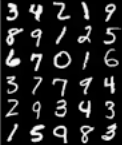 3 4 2 1 9
8 9 1 2 5
6 7 0 1 6
3 7 7 9 4
2 9 3 4 3
1 5 9 8 3